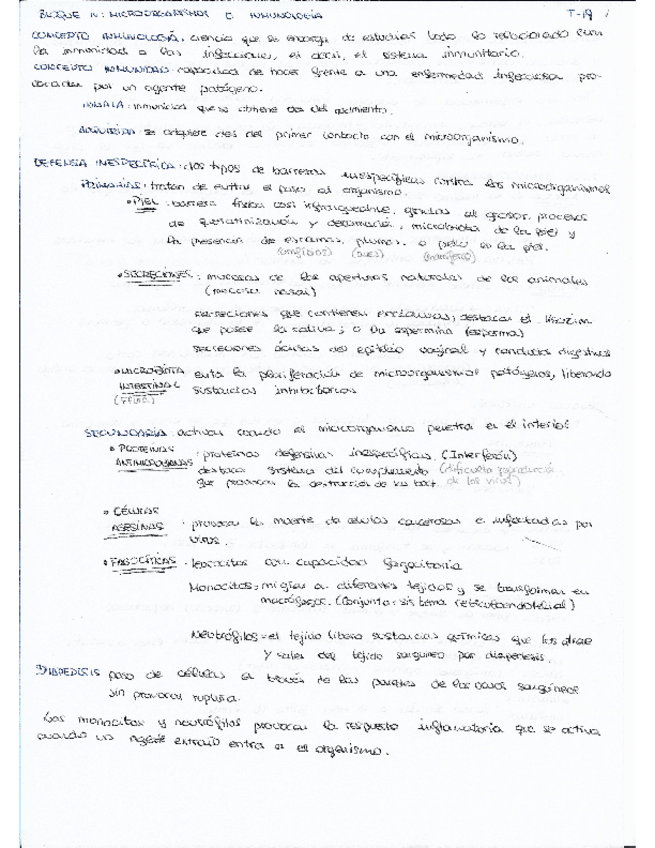 BLOQUE IV: MICROORGANISMOS E INMUNOLOGÍA T-19 1
CONCEPTO INMUNOLOGÍA: ciencia que se encarga de estudiar todo lo relacionado con
la inmunidad a las infecciones, es decir, el sistema inmunitario.
CONCEPTO INMUNIDAD: capacidad de hacer frente a una enfermedad infecciosa pro-
vocadas por un agente patógeno.
INNATA: inmunidad que se obtiene des del nacimiento.
ADQUIRIDA: se adquiere des del primer contacto con el microorganismo.
DEFENSA INESPECÍFICA: dos tipos de barreras inespecíficas contra los microorganismos
PRIMARIAS: tratan de evitar el paso al organismo.
• PIEL: barrera física casi infranqueable, gracias al grosor, procesos
de queratinización y descamación, microbiota de la piel y
la presencia de escamas, plumas, o pelo en la piel.
(anfibios) (aves) (mamíferos)
• SECRECIONES: mucosas de las aperturas naturales de los animales
(mucosa nasal)
secreciones que contienen enzimas, destacar el lisozim
que posee la saliva; o la espermina (esperma)
secreciones ácidas del epitelio vaginal y conductos digestivos
• MICROBIOTA evita la proliferación de microorganismos patógenos, liberando
INTESTINAL sustancias inhibitorias
(FLORA)
SECUNDARIA: activan cuando el microorganismo penetra en el interior
• PROTEINAS : proteínas defensivas inespecíficas. (Interferón)
ANTIMICROBIANAS destacar sistema del complemento (dificulta reproducción
que provocan la destrucción de las bact. de los virus)
• CÉLULAS
ASESINAS : provocan la muerte de células cancerosas e infectadas por
virus.
• FAGOCÍTICAS: leucocitos con capacidad fagocitaria
Monocitos, migran a diferentes tejidos y se transforman en
macrófagos. (Conjunto: sistema reticuloendotelial)
Neutrófilos = el tejido libera sustancias químicas que los atrae
y salen del tejido sanguíneo por diapedesis.
DIAPEDESIS paso de células a través de las paredes de los vasos sanguíneos
sin provocar ruptura.
Los monocitos y neutrófilos provocan la respuesta inflamatoria que se activa
cuando un agente extraño entra en el organismo.